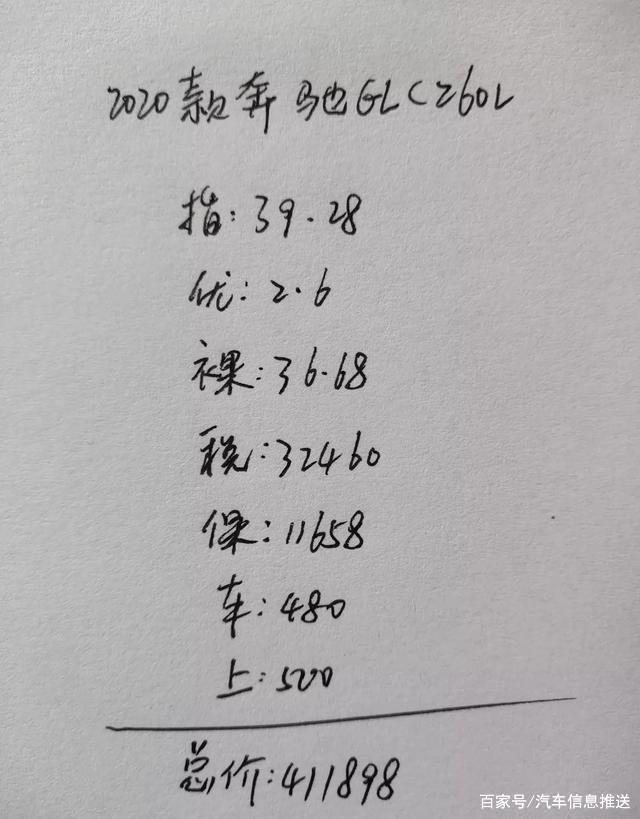 2020款奔驰GLC260L
指:39.28
优:2.6
裸:36.68
税:32460
保:11658
车:480
上:500
总价:411898
百家号/汽车信息推送